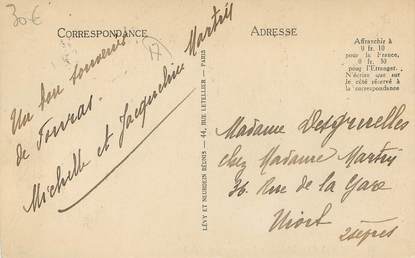 30€
CORRESPONDANCE
ADRESSE
Affranchir à
0 fr. 10
pour la France,
0 fr. 30
pour l'Etranger.
N'écrire que sur
le côté réservé à
la correspondance
17
Un bon souvenir
de Fouras.
Michelle et Jacqueline Martris
LÉVY ET NEURDEIN RÉUNIS — 44, RUE LETELLIER — PARIS
Madame
chez Madame Martris
36 Rue de la Gare
Niort
2 Sèvres